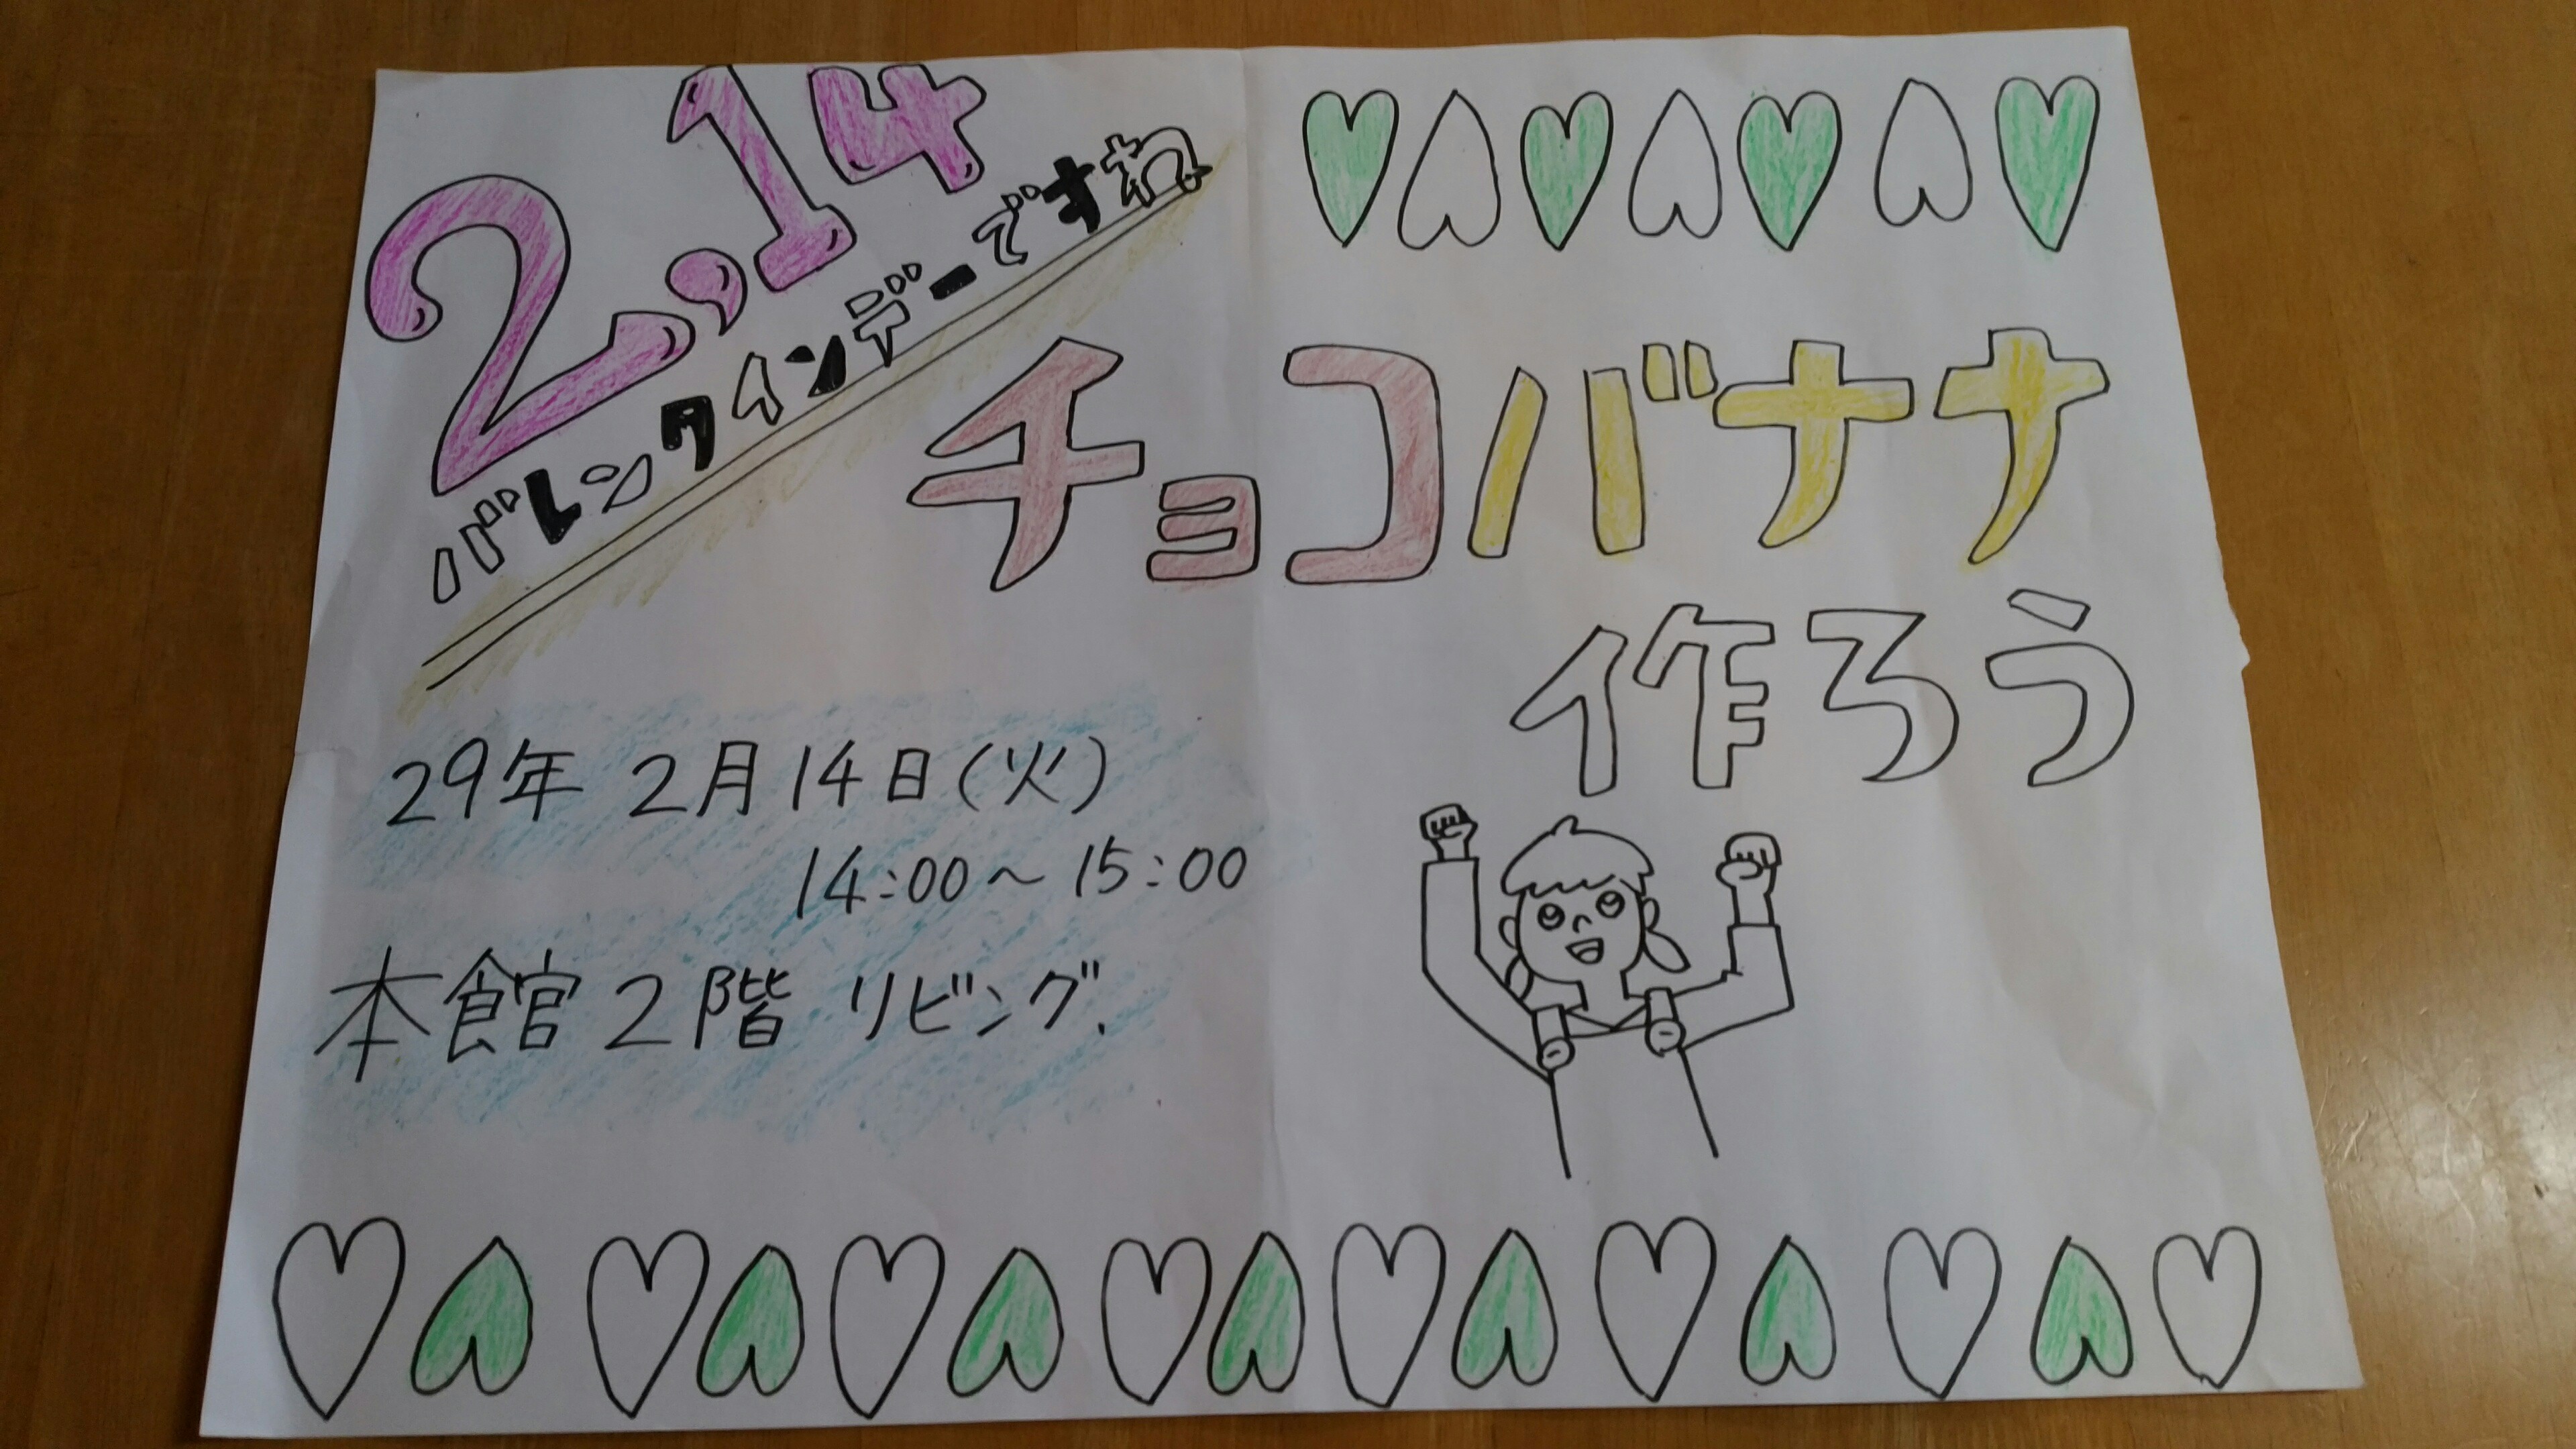 2,14
バレンタインデーですね
チョコバナナ
作ろう
29年 2月14日(火)
14:00～15:00
本館2階 リビング.